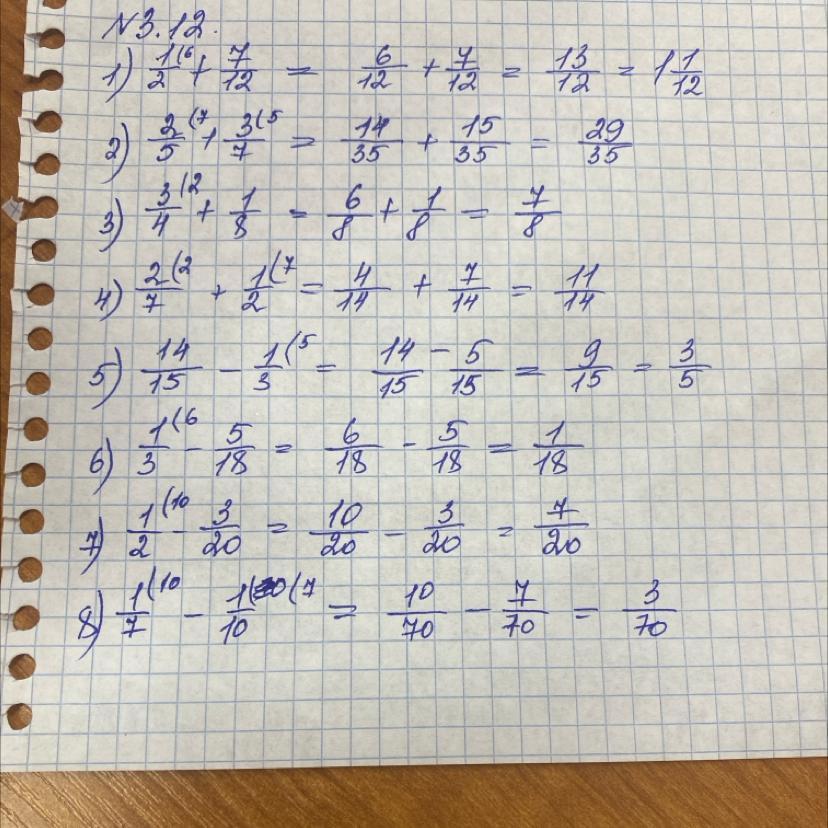 N3.12.
1) 1/2 (6 + 7/12 = 6/12 + 7/12 = 13/12 = 1 1/12
2) 2/5 (7 + 3/7 (5 = 14/35 + 15/35 = 29/35
3) 3/4 (2 + 1/8 = 6/8 + 1/8 = 7/8
4) 2/7 (2 + 1/2 (7 = 4/14 + 7/14 = 11/14
5) 14/15 - 1/3 (5 = 14/15 - 5/15 = 9/15 = 3/5
6) 1/3 (6 - 5/18 = 6/18 - 5/18 = 1/18
7) 1/2 (10 - 3/20 = 10/20 - 3/20 = 7/20
8) 1/7 (10 - 1/10 (7 = 10/70 - 7/70 = 3/70